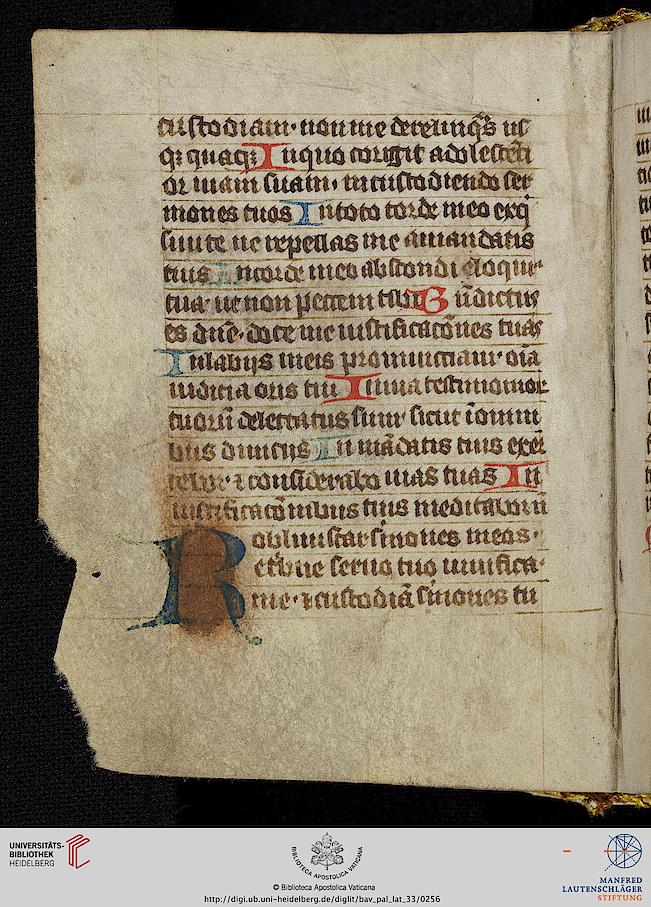 custodiam · non me derelinq̃s us
qz quaqz In quo corrigit adolescẽti
or uiam suam · in custodiendo ser
mones tuos In toto corde meo exq̃
siui te ne repellas me a mandatis
tuis In corde meo abscondi eloquia
tua · ut non peccem tibi Bñdictus
es dñe · doce me iustificacõnes tuas
In labijs meis pronunciaui · oĩa
iudicia oris tui In uia testimonior
tuorũ delectatus sum · sicut ĩ omni
bus diuicijs In mãdatis tuis exer
cebor · ⁊ considerabo uias tuas In
iustificacõnibus tuis meditabor nõ
obliuiscar s̃mones meos ·
Retᷓbue seruo tuo uiuifica
me · ⁊ custodiã s̃mones tu
UNIVERSITÄTS-
BIBLIOTHEK
HEIDELBERG
BIBLIOTECA APOSTOLICA VATICANA
© Biblioteca Apostolica Vaticana
http://digi.ub.uni-heidelberg.de/diglit/bav_pal_lat_33/0256
MANFRED
LAUTENSCHLÄGER
STIFTUNG